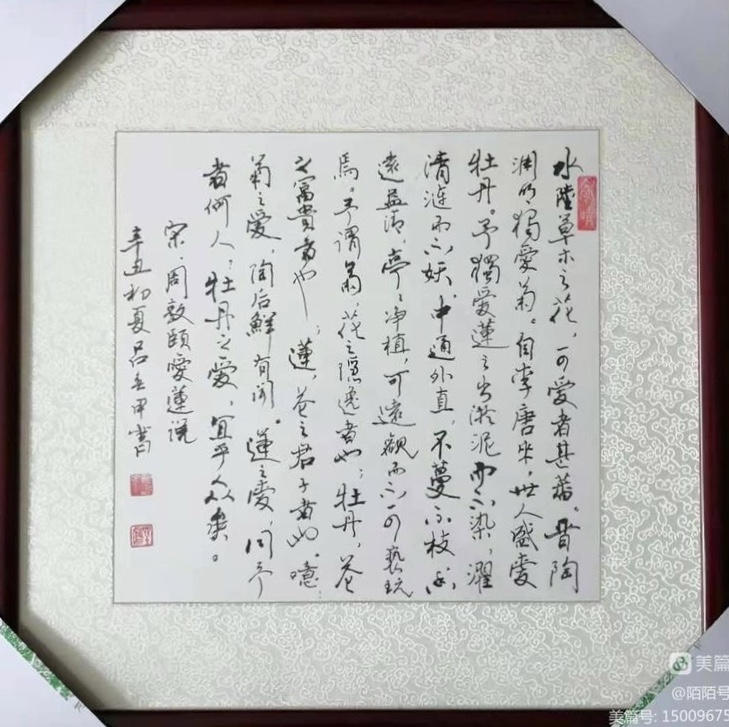 水陸草木之花，可愛者甚蕃。晉陶
渊明獨愛菊。自李唐来，世人盛愛
牡丹。予獨愛蓮之出淤泥而不染，濯
清漣而不妖，中通外直，不蔓不枝，香
遠益清，亭亭净植，可遠觀而不可亵玩
焉。予謂菊，花之隱逸者也；牡丹，花
之富貴者也；蓮，花之君子者也。噫！
菊之愛，陶后鮮有闻。蓮之愛，同予
者何人；牡丹之愛，宜乎众矣。
宋·周敦頤愛蓮说
辛丑初夏吕甲書
美篇
@陌陌号
美篇号: 15009675